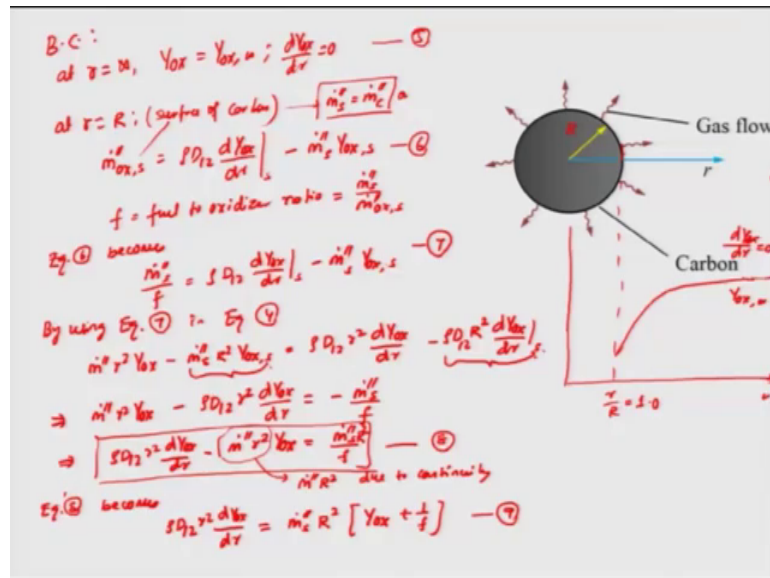 B.C:
at r = ∞, Y_ox = Y_ox,∞ ; dY_ox/dr = 0 — ⑤
at r = R ; (surface of carbon) → ṁ″_s = ṁ″_c
ṁ″_ox,s = ρD_12 dY_ox/dr|_s - ṁ″_s Y_ox,s — ⑥
f = fuel to oxidizer ratio = ṁ″_s / ṁ″_ox,s
Eq. ⑥ become
ṁ″_s / f = ρD_12 dY_ox/dr|_s - ṁ″_s Y_ox,s — ⑦
By using Eq. ⑦ in Eq ④
ṁ″ r² Y_ox - ṁ″_s R² Y_ox,s = ρD_12 r² dY_ox/dr - ρD_12 R² dY_ox/dr|_s
⇒ ṁ″ r² Y_ox - ρD_12 r² dY_ox/dr = - ṁ″_s / f
⇒ ρD_12 r² dY_ox/dr - ṁ″ r² Y_ox = ṁ″_s R² / f — ⑧
ṁ″ R² due to continuity
Eq. ⑧ becomes
ρD_12 r² dY_ox/dr = ṁ″_s R² [Y_ox + 1/f] — ⑨
R
Gas flow
r
Carbon
dY_ox/dr = 0
Y_ox,∞
r/R = 1.0